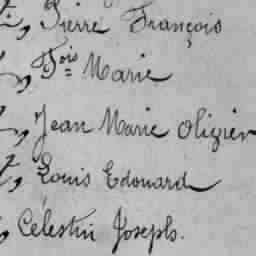 , Pierre François
, Fois Marie
, Jean Marie Olivier
, Louis Edouard
, Célestin Joseph.